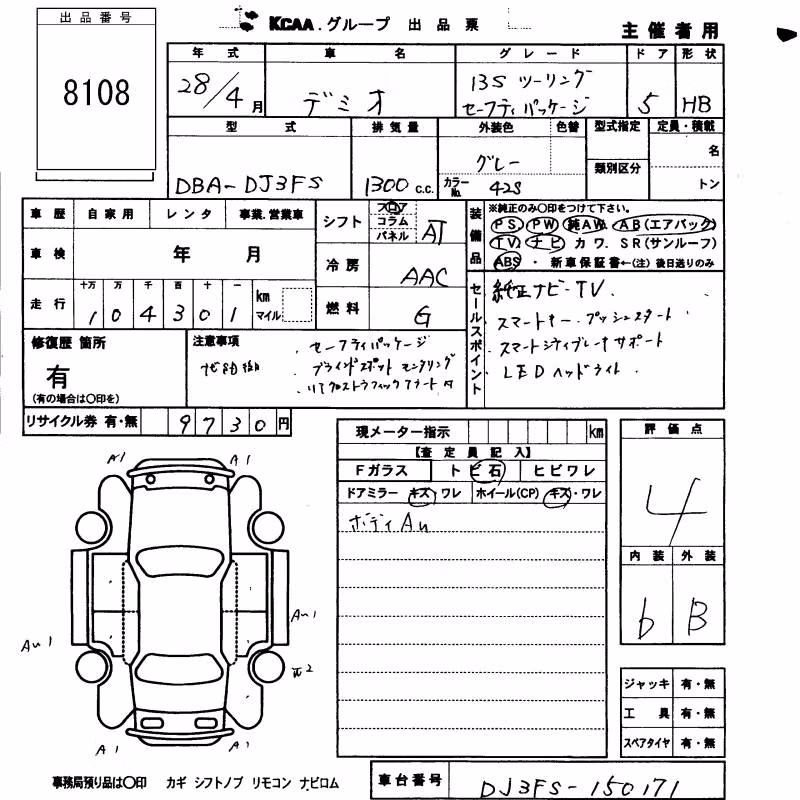 出品番号
8108
KCAA.グループ 出品票
主催者用
年式 車名 グレード ドア 形状
28/4月 デミオ 13S ツーリング セーフティパッケージ 5 HB
型式 排気量 外装色 色替 型式指定 定員・積載
DBA-DJ3FS 1300 c.c. グレー カラーNo. 42S 類別区分 名 トン
車歴 自家用 レンタ 事業.営業車
シフト フロア コラム パネル AT
装備品 ※純正のみ〇印をつけて下さい。
PS PW 純AW AB(エアバック)
TV ナビ カワ. SR(サンルーフ)
ABS ・ 新車保証書←(注)後日送りのみ
車検 年 月
冷房 AAC
走行 十万 万 千 百 十 一 km マイル
1 0 4 3 0 1
燃料 G
セールスポイント
純正ナビ・TV
・スマートキー・プッシュスタート
・スマートシティブレーキサポート
・LEDヘッドライト
修復歴 箇所
有
(有の場合は〇印を)
注意事項
・セーフティパッケージ
・ブラインドスポットモニタリング
・リアクロストラフィックアラート
リサイクル券 有・無 9730円
現メーター指示 km
【査定員記入】
Fガラス トビ石 ヒビワレ
ドアミラー キズ・ワレ ホイール(CP) キズ・ワレ
ボディ AU
評価点
4
内装 外装
b B
A1 A1
AU1
AU1
2
A1 A1
ジャッキ 有・無
工具 有・無
スペアタイヤ 有・無
事務局預り品は〇印 カギ シフトノブ リモコン ナビロム
車台番号 DJ3FS-150171